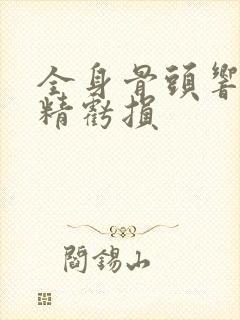 全身骨頭響
精虧損
閻錫山